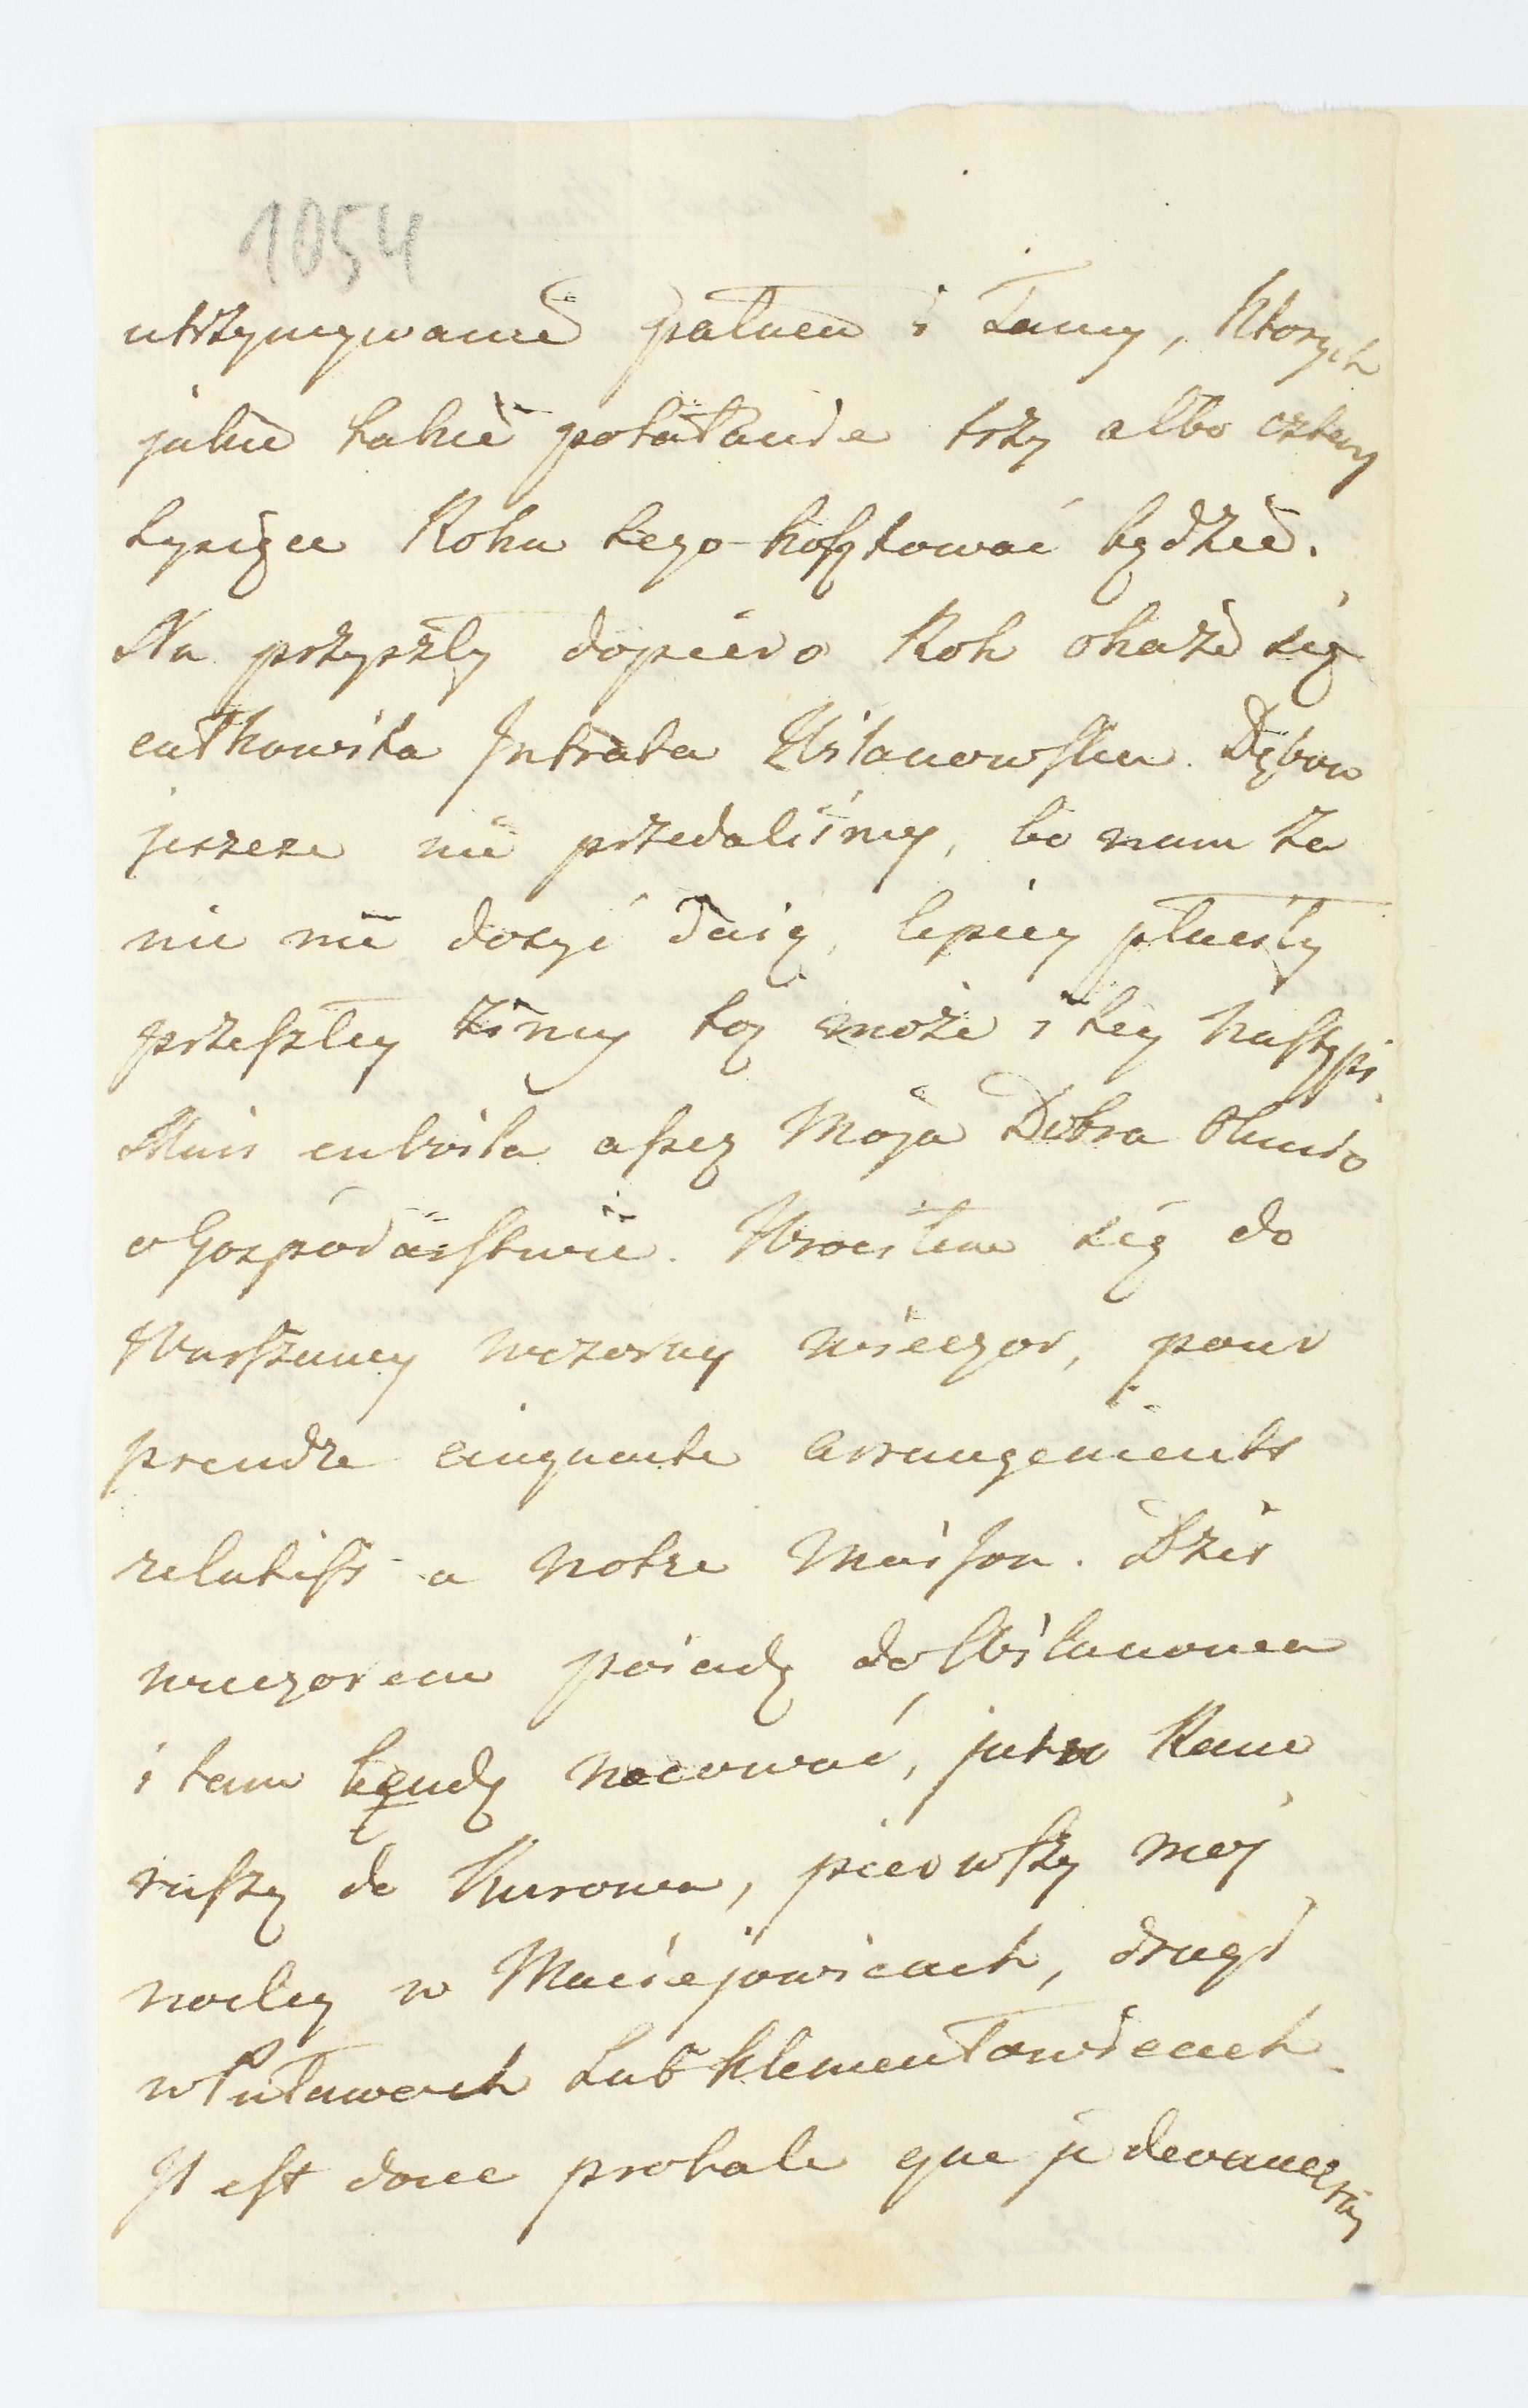 1054
utrzymywanie pałacu i Tamy, ktorych
jakie takie połatanie trzy albo cztery
tysięce Roku tego kosztować będzie.
Na przyszły dopiero Rok okaże się
całkowita Intrata Wilanowska. Dębow
jeszcze nie przedaliśmy, bo nam za
nie nie dosyć daią, lepiey płacily
przeszłey zimy toż może i tey nastąpi.
Mais en voila assez Moja Dobra Olesio
o Gospodarstwie. Wrocilem się do
Warszawy wczoray wieczor, pour
prendre cinquante arrangements
relatifs a notre Maison. Dziś
wieczorem poiadę do Wilanowa
i tam będę nocować, jutro Rano
ruszę do Kurowa, pierwszy moj
nocleg w Maciejowicach, drugi
w Puławach lub Klementowicach.
Il est donc probale que je devancerai